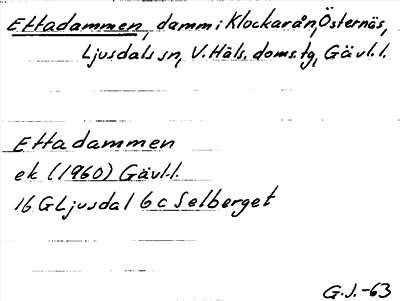 Ettadammen, damm i Klockarån, Östernäs,
Ljusdals sn, V. Häls. doms. tg, Gävl. l.
Ettadammen
ek (1960) Gävl. l.
16 G Ljusdal 6 c Selberget
G.J. -63